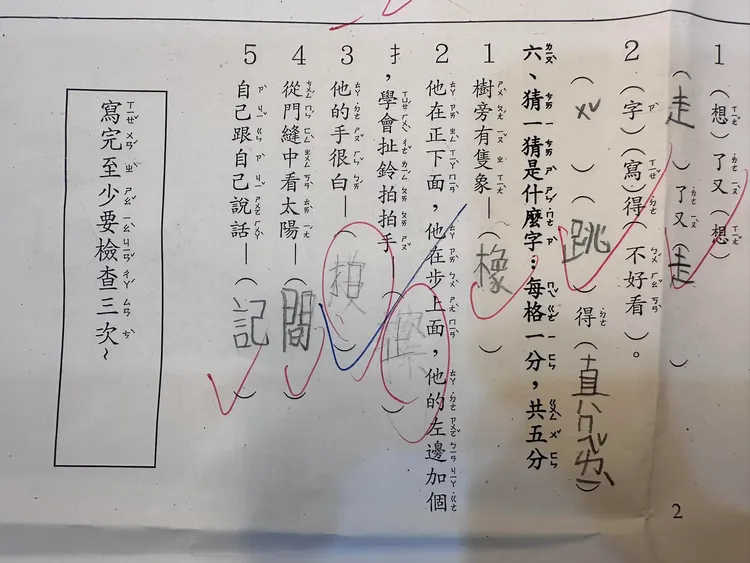 1（想）了又（想）
（走）了又（走）
2（字）（寫）得（不好看）。
（ㄨˇ）（跳）得（真ㄏㄠˇ ㄎㄢˋ）
六、猜一猜是什麼字：每格一分，共五分
1樹旁有隻象—（橡）
2他在正下面，他在步上面，他的左邊加個
扌，學會扯鈴拍拍手（）
3他的手很白—（）
4從門縫中看太陽—（間）
5自己跟自己說話—（記）
寫完至少要檢查三次~
2